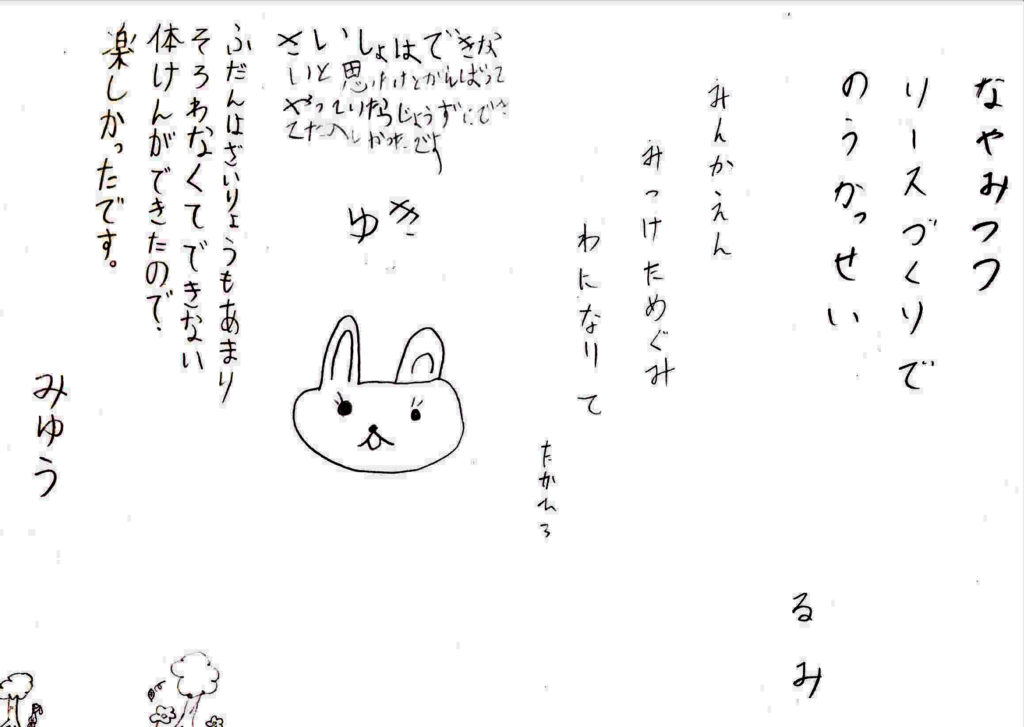 なやみつつ
リースづくりで
のうかっせい
るみ
みんかえん
みつけためぐみ
わになりて
たかひろ
さいしょはできな
いと思ったけどがんばって
やっていたらじょうずにでき
てたのしかったです
ゆき
ふだんはざいりょうもあまり
そろわなくてできない
体けんができたので、
楽しかったです。
みゆう